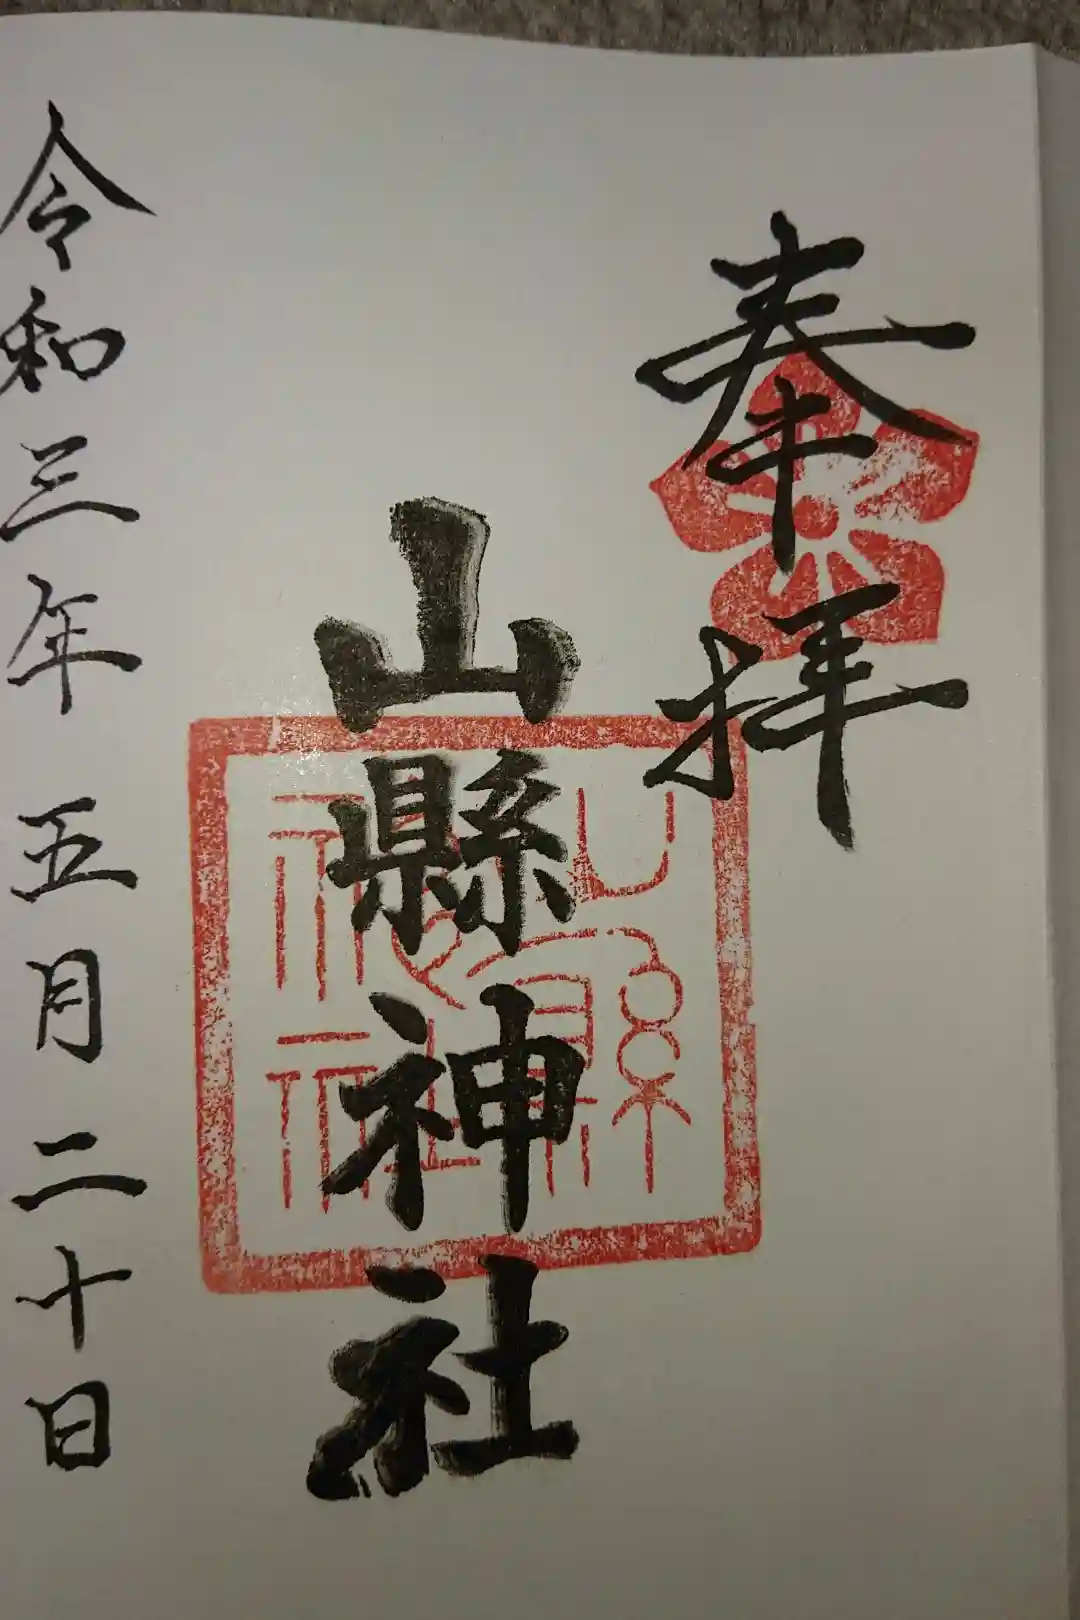 奉拝
山縣神社
山縣神社
令和三年五月二十日